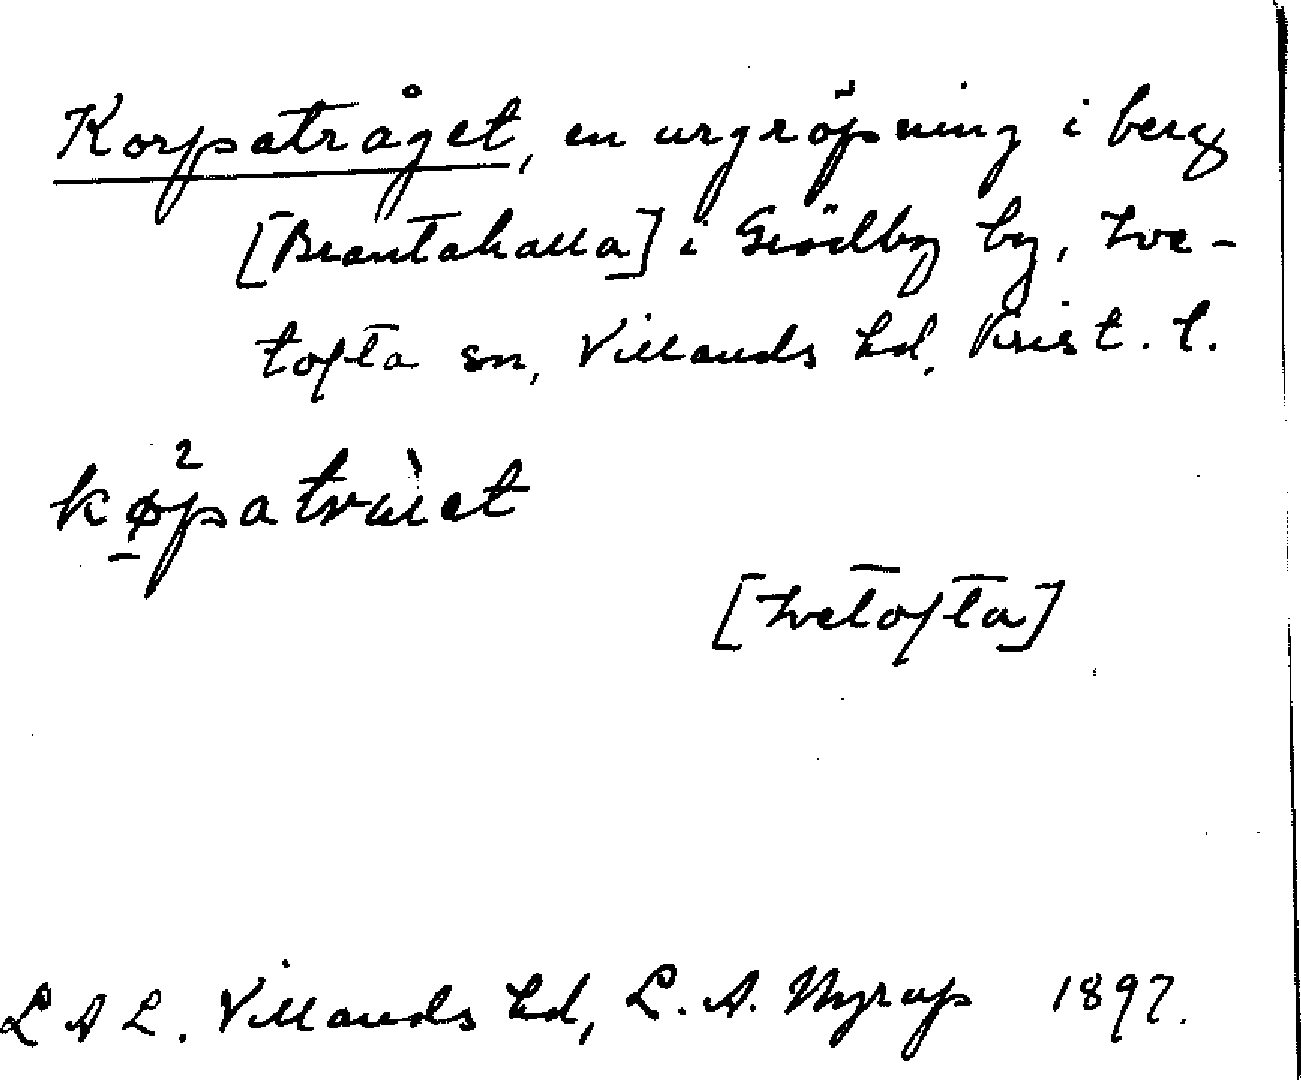 Korpatråget, en urgröpning i berg
[Brantahalla] i Grödby by, Ive-
tofta sn, Villands hd, Krist. l.
kǿ²patràet
[Ivetofta]
L A L. Villands hd, L. A. Nyrup 1897.